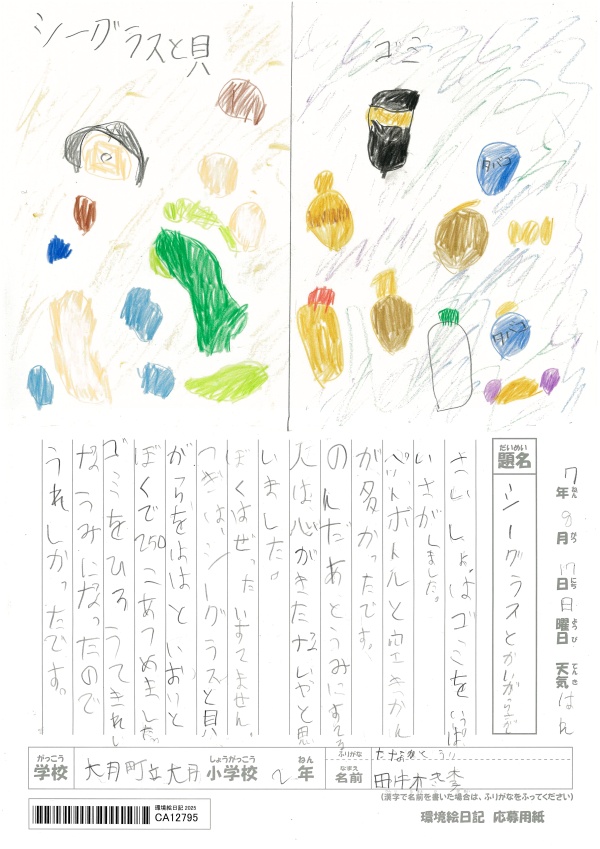 シーグラスと貝
ゴミ
タバコ
タバコ
7年8月17日日曜日 天気はれ
ねん がつ にち ようび てんき
だいめい
題名
シーグラスとかいがら
さいしょはゴミをいっぱ
いさがしました。
ペットボトルと空きかん
が多かったです。
のんだあとうみにすてる
人は、心がきたないやと思
いました。
ぼくはぜったいすてません。
つぎは、シーグラスと貝
がらをははといおりと
ぼくで250こあつめました。
ゴミをひろうてきれい
なうみになったので
うれしかったです。
がっこう しょうがっこう ねん
学校 大月町立大月小学校 2年
ふりがな
なまえ
名前
(漢字で名前を書いた場合は、ふりがなをふってください)
環境絵日記 2025
CA12795
環境絵日記 応募用紙